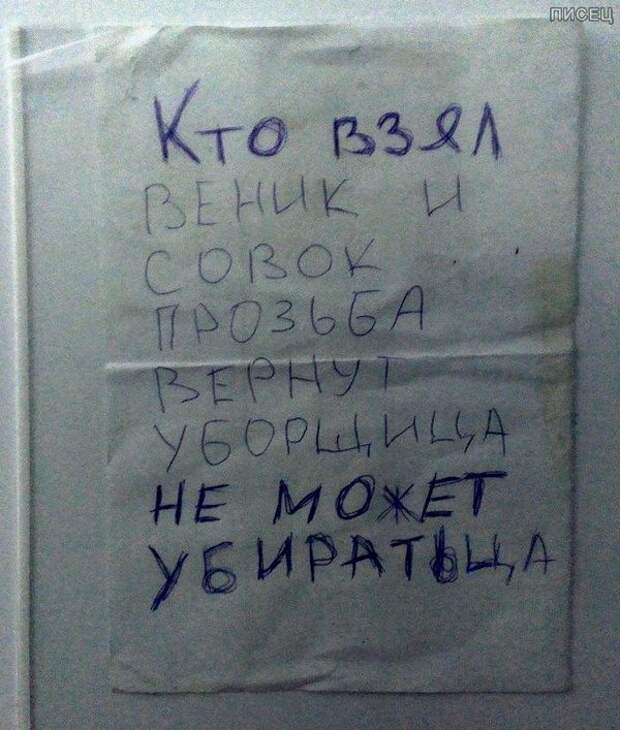 ПИСЕЦ
КТО ВЗЯЛ
ВЕНИК И
СОВОК
ПРОЗЬБА
ВЕРНУТ
УБОРЩИЦА
НЕ МОЖЕТ
УБИРАТЬЦА